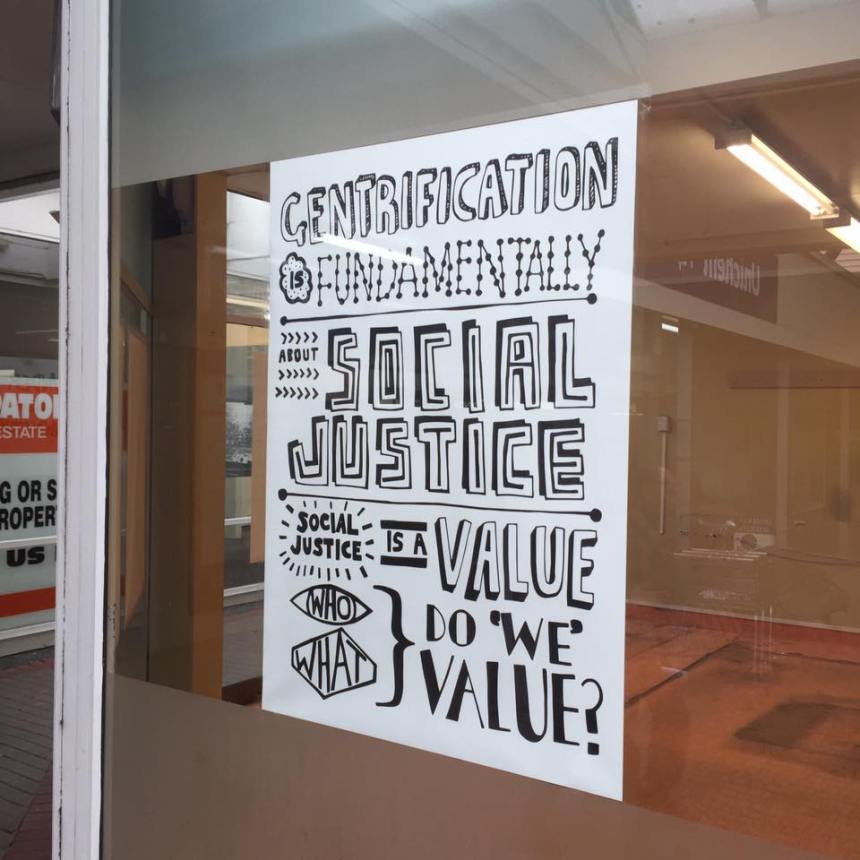 GENTRIFICATION
IS FUNDAMENTALLY
ABOUT SOCIAL
JUSTICE
SOCIAL JUSTICE IS A VALUE
WHO
WHAT
} DO 'WE'
VALUE?
PATO
ESTATE
G OR S
ROPER
US
Unichem